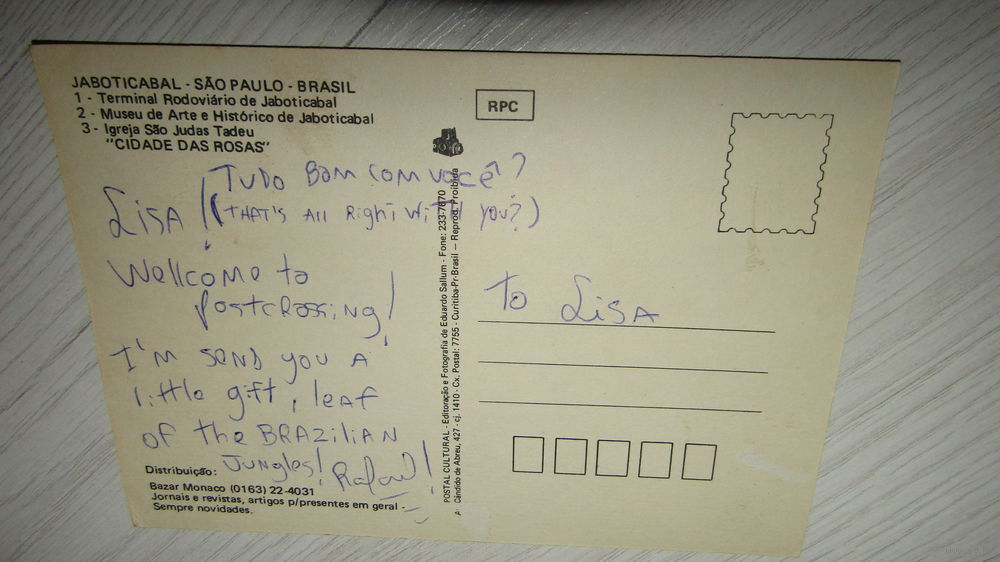 JABOTICABAL - SÃO PAULO - BRASIL
1 - Terminal Rodoviário de Jaboticabal
2 - Museu de Arte e Histórico de Jaboticabal
3 - Igreja São Judas Tadeu
"CIDADE DAS ROSAS"
TUDO BOM COM VOCÊ?
LISA! (THAT'S All Right WITH YOU?)
Wellcome to
Postcrossing!
I'M SEND YOU A
little gift, leaf
of the BRAZILIAN
JUNGLES! Rafael!
Distribuição:
Bazar Monaco (0163) 22-4031
Jornais e revistas, artigos p/presentes em geral -
Sempre novidades.
POSTAL CULTURAL - Editoração e Fotografia de Eduardo Sallum - Fone: 233-7670
Cândido de Abreu, 427 - cj. 1410 - Cx. Postal: 7755 - Curitiba-Pr-Brasil — Reprod. Proibida
RPC
To LISA